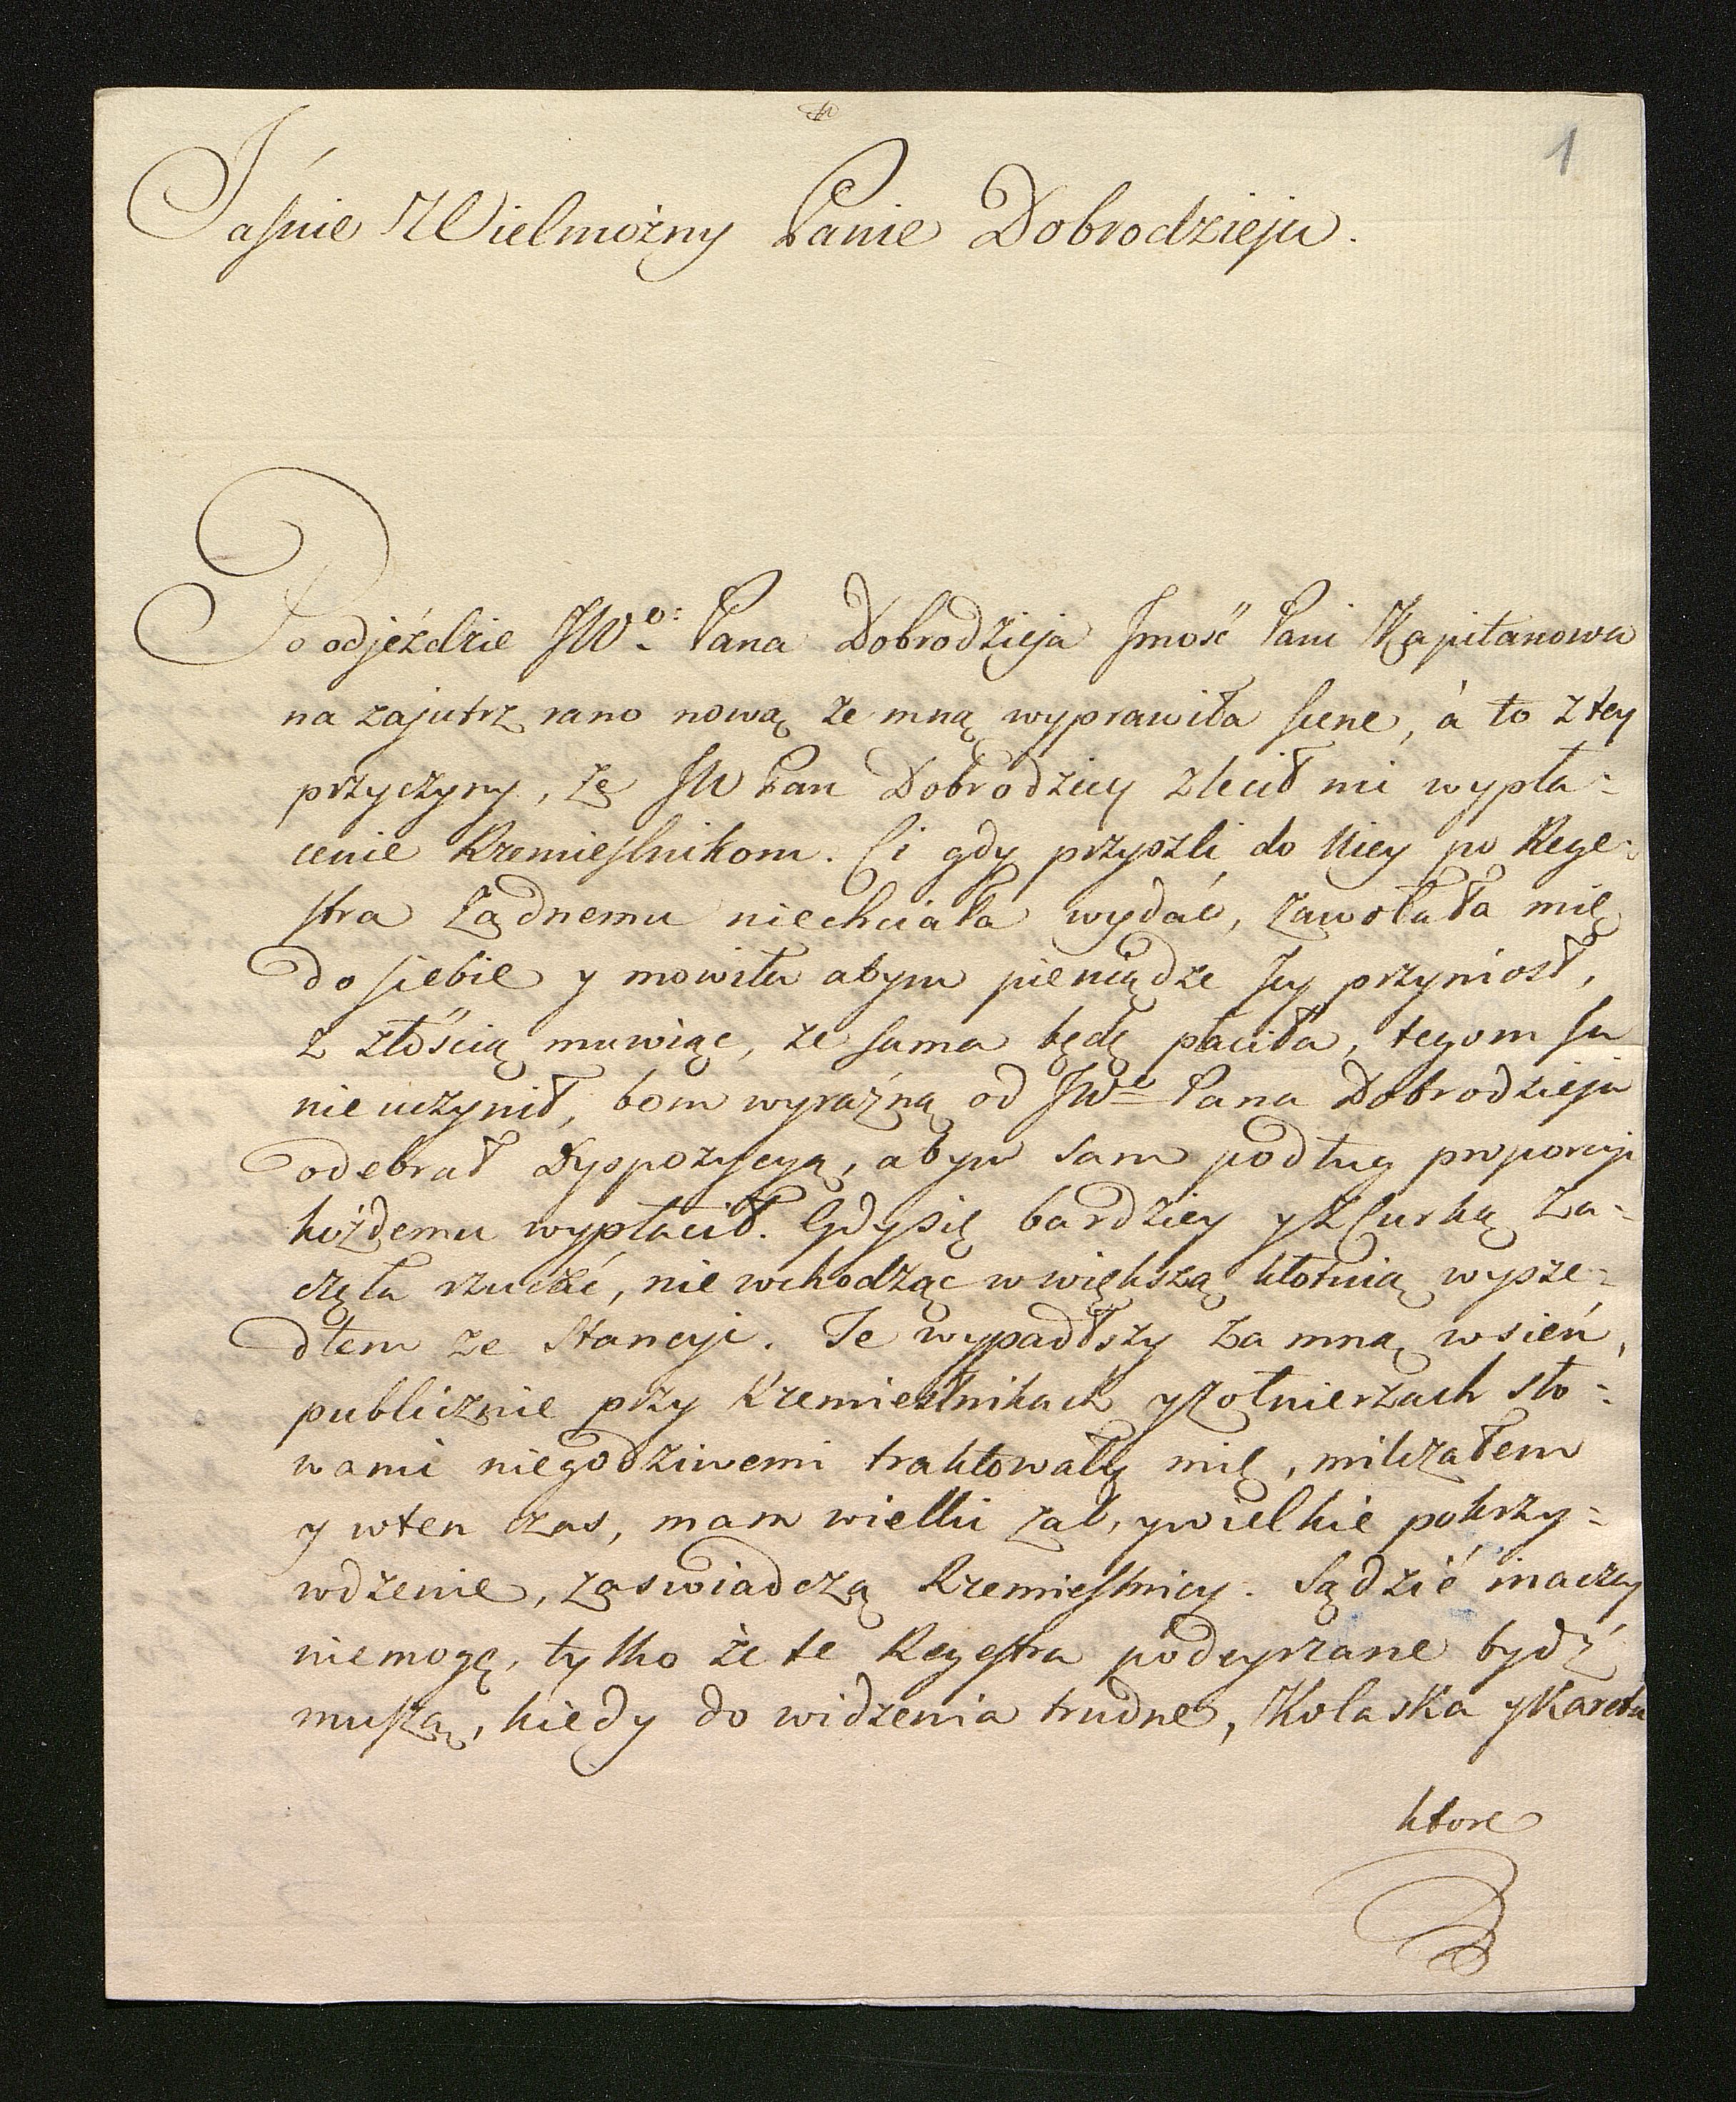 1
Jaśnie Wielmożny Panie Dobrodzieju.
Po odjeździe JWo: Pana Dobrodzieja Jmość Pani Kapitanowa
na zajutrz rano nową ze mną wyprawiła scene, à to z tey
przyczyny, że JW Pan Dobrodziey zlecił mi wypła-
cenie Rzemieslnikom. Ci gdy przyszli do Niey po Rege-
stra żadnemu niechciała wydać, zawołała mię
do siebie y mowiła abym pieniądze Jey przyniosł,
z złością muwiąc, że sama będę płaciła, tegom Ja
nie uczynił, bom wyraźną od JWo Pana Dobrodzieja
odebrał Dyspozycyą, abym sam podług proporcyi
każdemu wypłacił. Gdy się bardziey y z Curką za-
częła rzucać, nie wchodząc w większą kłotnią wysze-
dłem ze Stancyi. Te wypadłszy za mną w sień,
publicznie przy Rzemieslnikach y Zołnierzach sło-
wami niegodziwemi traktowały mię, milczałem
y w ten czas, mam wielki żal, y wielkie pokrzy-
wdzenie, zaswiadczą Rzemieslnicy. Sądzić inaczey
niemogę, tylko że te Regestra podeyrzane bydź
muszą, kiedy do widzenia trudne, Kolaska y Kareta
ktore